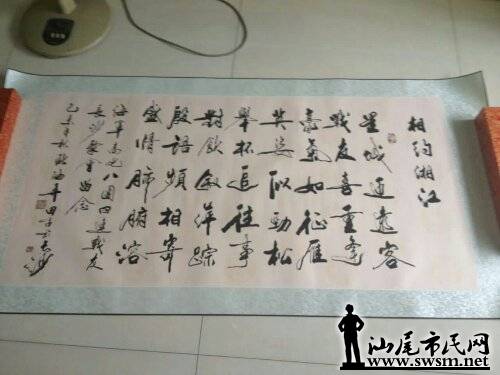 相约湘江
星城迎远客
战友喜重逢
豪气如征雁
英姿似劲松
举杯追往事
对饮叙萍踪
殷语频相寄
盛情肺腑溶
海军 八团四连战友
长沙聚会留念
汕尾市民网
www.swsm.net